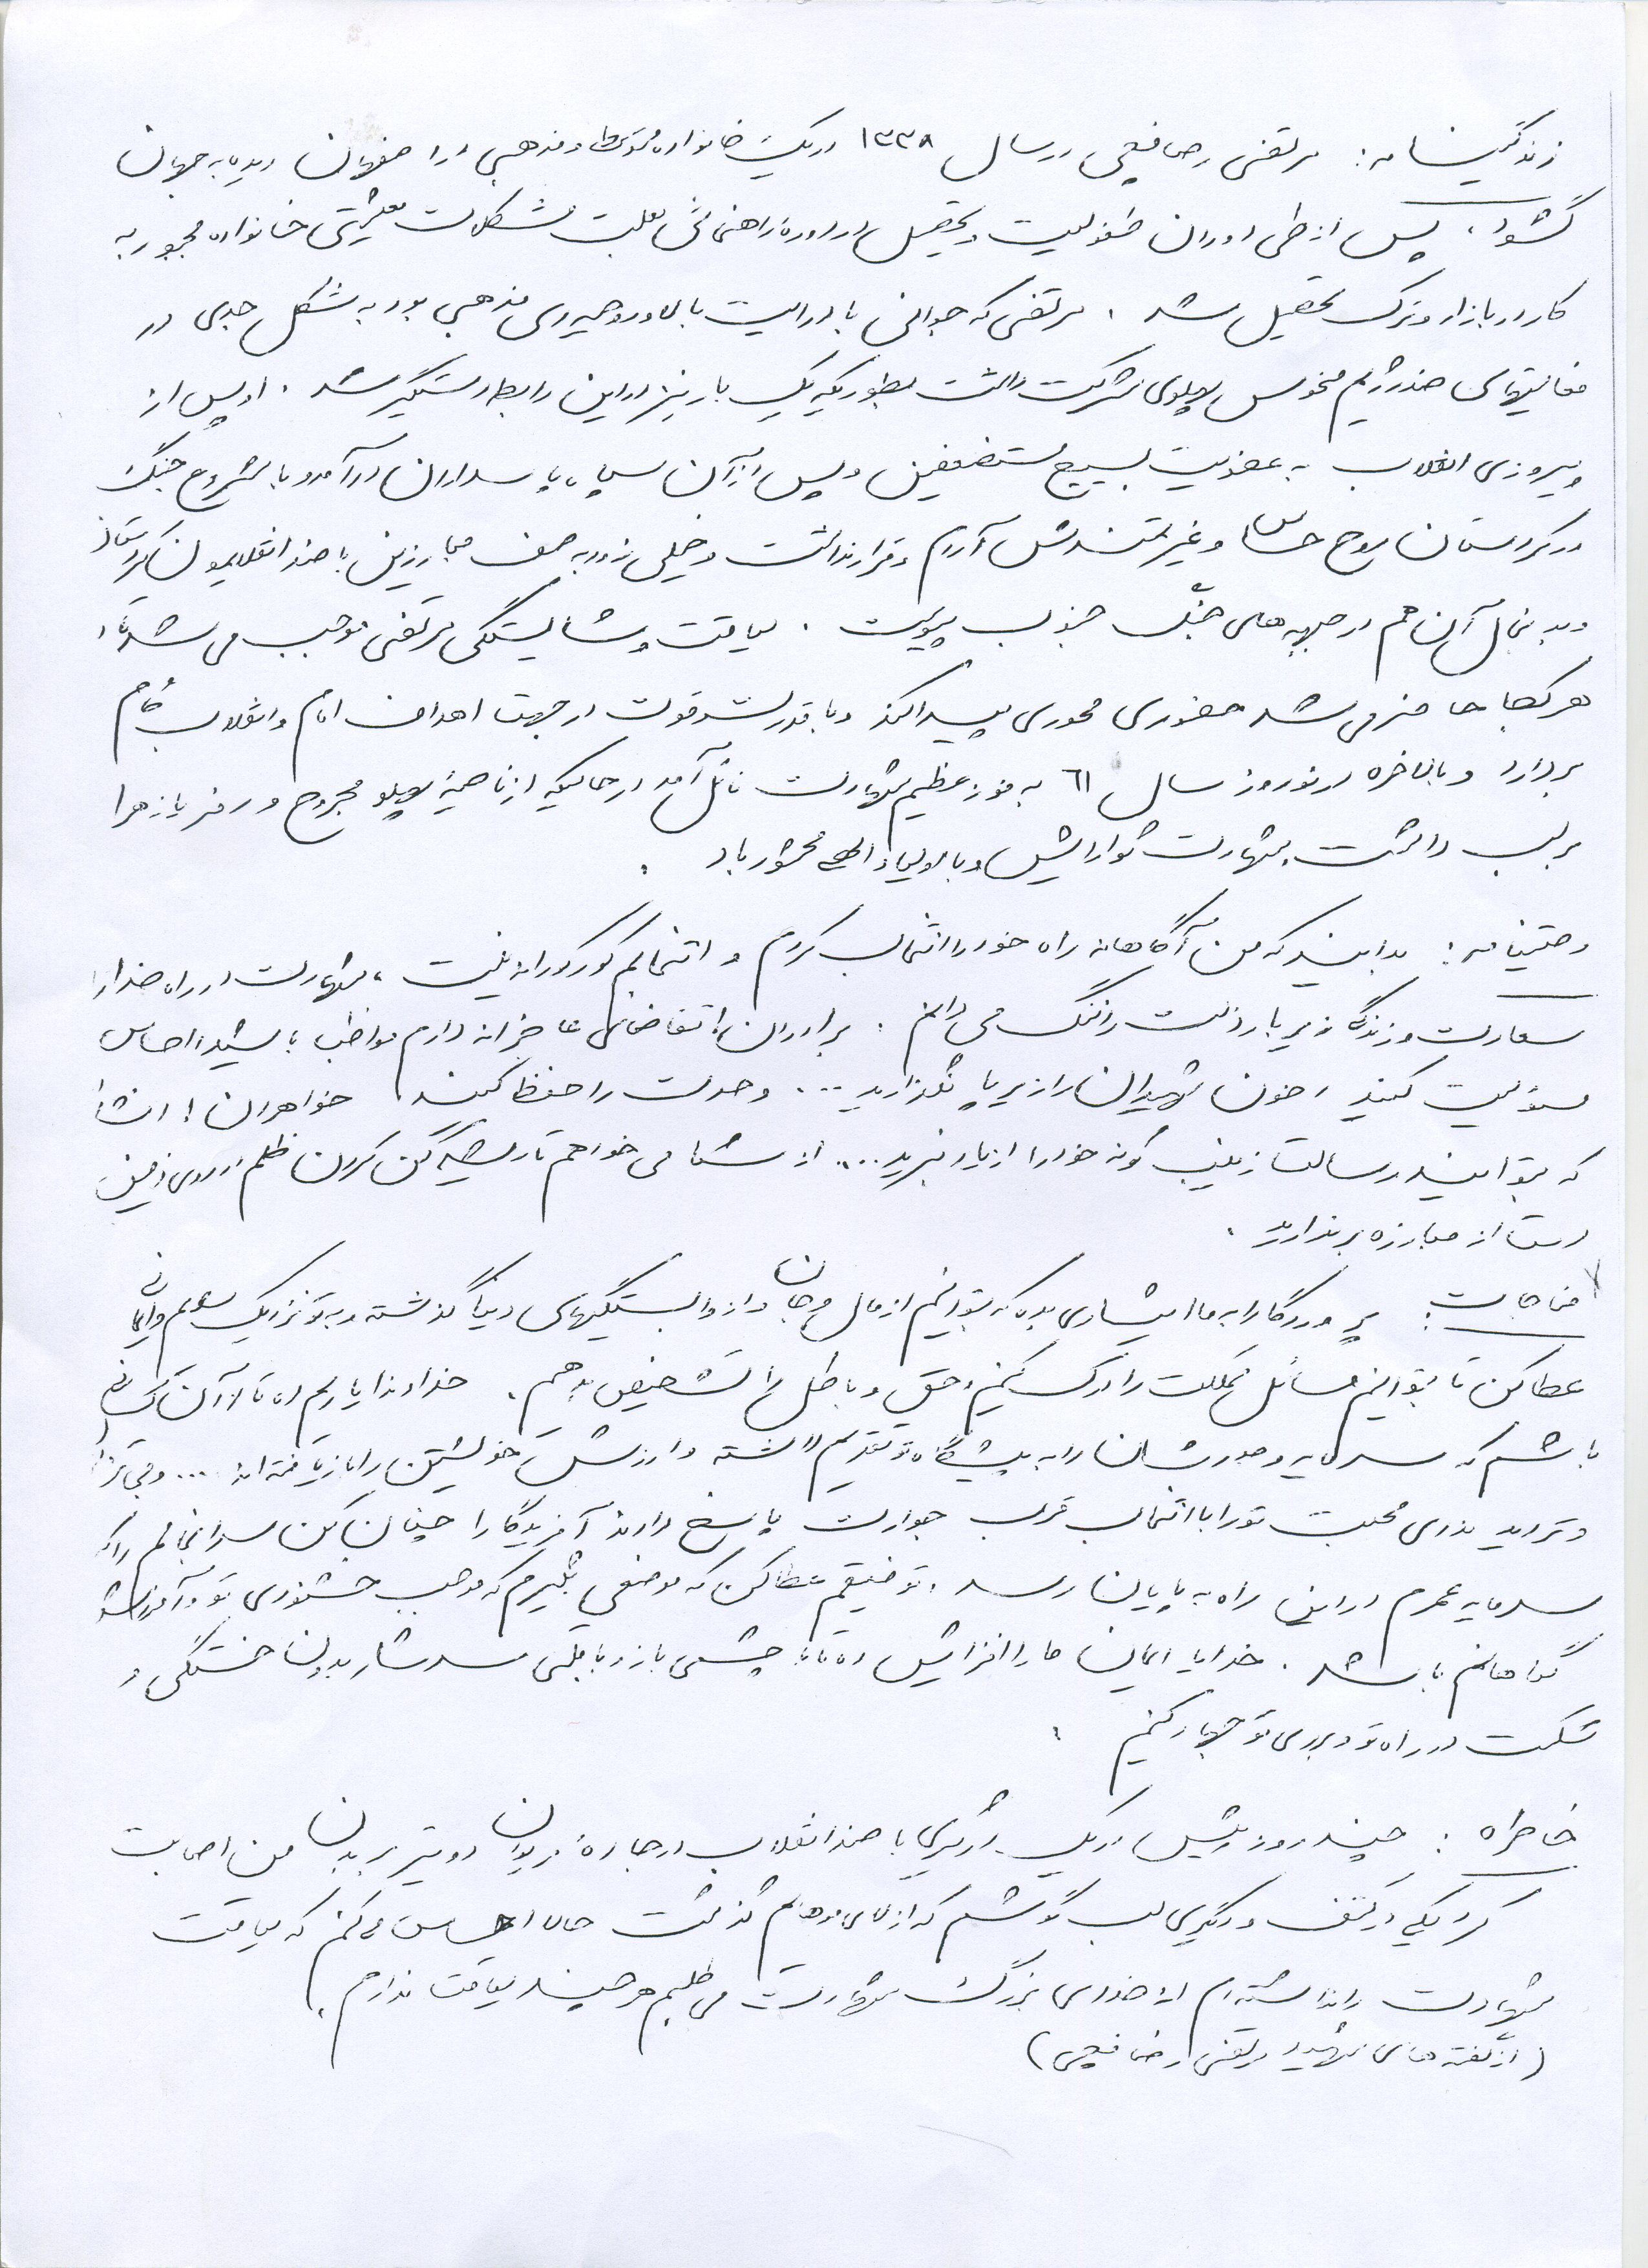 زندگینامه: مرتضی رضاقیچی در سال ۱۳۳۸ در یک خانواده متوسط و مذهبی در اصفهان دیده به جهان
گشود، پس از طی دوران طفولیت و تحصیل در دوره راهنمائی بعلت مشکلات معیشتی خانواده مجبور به
کار در بازار و ترک تحصیل شد. مرتضی که جوانی با درایت بالا و روحیه‌ی مذهبی بود به شکل جدی در
فعالیتهای ضد رژیم منحوس پهلوی شرکت داشت بطوریکه یک بار نیز در این رابطه دستگیر شد. او پس از
پیروزی انقلاب به عضویت بسیج مستضعفین و پس از آن سپاه پاسداران درآمد و با شروع جنگ
در کردستان روح حساس و غیرتمندش آرام و قرار نداشت و خیلی زود به صف مبارزین با ضد انقلابیون کردستان
و بدنبال آن هم در جبهه های جنگ جنوب پیوست. لیاقت و شایستگی مرتضی موجب می شد تا
هر کجا حاضر می شد حضوری محوری پیدا کند و با قدرت و قوت در جهت اهداف امام و انقلاب گام
بردارد و بالاخره در نوروز سال ٦١ به فوز عظیم شهادت نائل آمد در حالیکه از ناحیه پهلو مجروح و رمز یا زهرا
بر لب داشت. شهادت گوارایش و با اولیاء الهی محشور باد.
وصیتنامه: بدانید که من آگاهانه راه خود را انتخاب کردم و انتخابم کورکورانه نیست، شهادت در راه خدا را
سعادت و زندگی زیر بار ذلت را ننگ می دانم. برادران! تقاضای عاجزانه دارم مواظب باشید، احساس
مسؤلیت کنید و خون شهیدان را زیر پا نگذارید ... وحدت را حفظ کنید خواهران! انشاا...
که بتوانید رسالت زینب گونه خود را از یاد نبرید ... از شما می خواهم تا ریشه کن کردن ظلم در روی زمین
دست از مبارزه برندارید.
مناجات: پروردگارا به ما ایثاری بده که بتوانیم از مال و جان و از وابستگیهای دنیا گذشته و به تو نزدیک شویم و ایمانی
عطا کن تا بتوانیم مسائل مملکت را درک کنیم و حق و باطل را تشخیص بدهیم. خداوندا یاریم ده تا از آن کسانی
باشم که سرمایه وجودشان را به پیشگاه تو تقدیم داشته و ارزش خویشتن را بازیافته اند ... و بی تزلزل
و تردید ندای محبت تو را با انتخاب قرب جوارت پاسخ دادند آفریدگارا چنان کن سرانجامم را که
سرمایه عمرم در این راه به پایان رسد. توفیقم عطا کن که موضعی بگیرم که موجب خشنودی تو و آمرزش
گناهانم باشد. خدایا ایمان ما را افزایش ده تا با چشمی باز و با قلبی سرشار بدون خستگی و
شکست در راه تو و برای تو جهاد کنیم.
خاطره: چند روز پیش در یک درگیری با ضد انقلاب در جاده مریوان دو تیر بر بدن من اصابت
کرد یکی در کتف و دیگری لب گوشم که از لای موهایم گذشت حالا احساس می کنم که لیاقت
شهادت را نداشته ام از خدای بزرگ شهادت می طلبم هر چند لیاقت ندارم.
(از گفته های شهید مرتضی رضاقیچی)